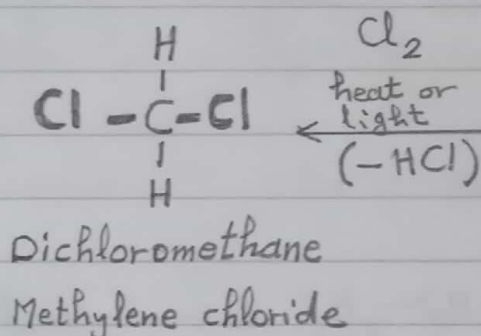 H
Cl - C - Cl
H
Cl2
heat or
light
(-HCl)
Dichloromethane
Methylene chloride